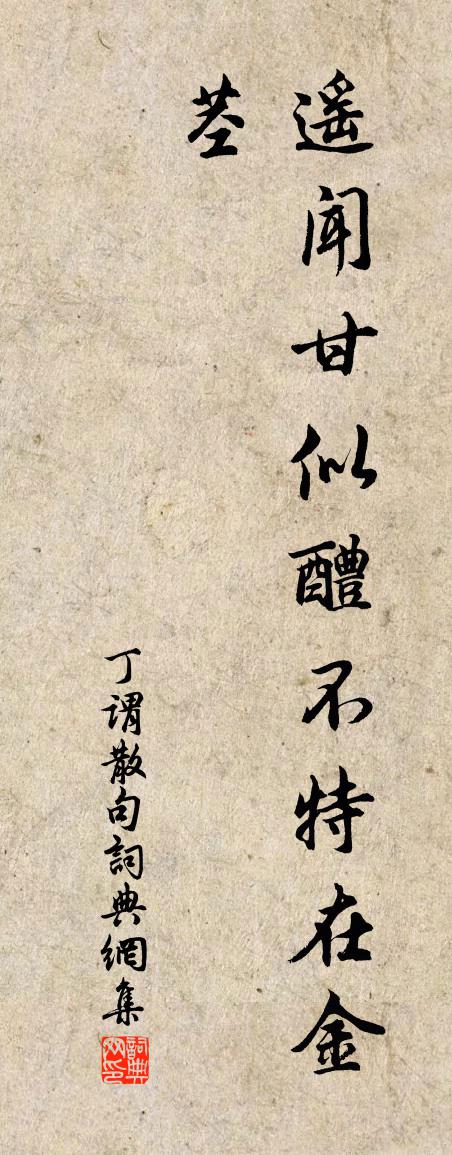 遥闻甘似醴不特在金
茎
丁谓散句詞典網集
詞典
网印